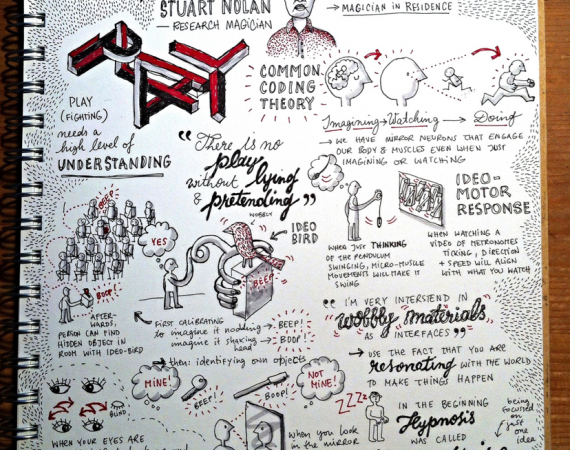 STUART NOLAN
— RESEARCH MAGICIAN
→ MAGICIAN IN RESIDENCE
PLAY
PLAY
(FIGHTING)
needs a
high level of
UNDERSTANDING
COMMON
CODING
THEORY
Imagining → Watching → Doing
→ WE HAVE MIRROR NEURONS THAT ENGAGE
OUR BODY & MUSCLES EVEN WHEN JUST
IMAGINING OR WATCHING
“There is no
play
without lying
& pretending”
IDEO-
MOTOR
RESPONSE
WHEN JUST THINKING
OF THE PENDULUM
SWINGING, MICRO-MUSCLE
MOVEMENTS WILL MAKE IT
SWING
WHEN WATCHING A
VIDEO OF METRONOMES
TICKING, DIRECTION
+ SPEED WILL ALIGN
WITH WHAT YOU WATCH
BEEP!
YES
WOBBLY
IDEO
BIRD
BEEP!
BOOP!
AFTER-
WARDS,
PERSON CAN FIND
HIDDEN OBJECT IN
ROOM WITH IDEO-BIRD
FIRST CALIBRATING
to imagine it nodding → BEEP!
imagine it shaking → BOOP!
head
then: identifying own objects
MINE!
BEEP!
BOOP!
NOT
MINE!
“I'M VERY INTERSTEND IN
wobbly materials
AS INTERFACES”
→ USE THE FACT THAT YOU ARE
resonating WITH THE WORLD
TO MAKE THINGS HAPPEN
BLIND
WHEN YOUR EYES ARE
when you look
in the mirror
ZZZZ
IN THE BEGINNING
Hypnosis
WAS CALLED
being
focussed
on
just one
idea